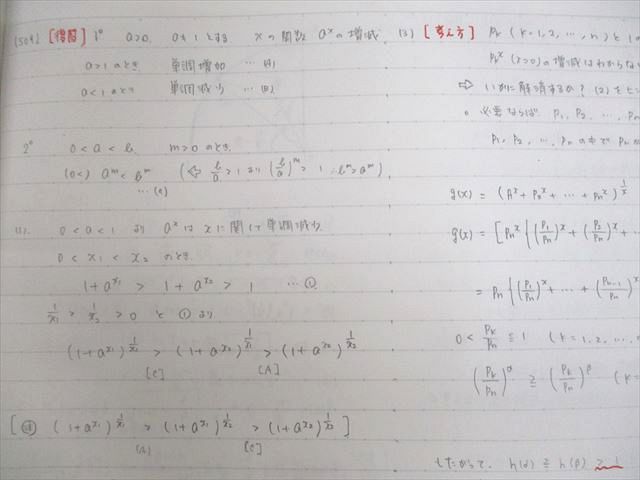 [504] [復習] 1° a>0, a≠1とする xの関数 a^x の増減
a>1のとき 単調増加 … (A)
a<1のとき 単調減少 … (B)
2° 0<a<b, m>0 のとき,
(0<) a^m < b^m (⇦ b/a > 1 より (b/a)^m > 1 ∴ b^m > a^m)
… (C)
(1). 0<a<1 より a^x は x に関して単調減少
0 < x₁ < x₂ のとき,
1+a^{x₁} > 1+a^{x₂} > 1 … ①
1/x₁ > 1/x₂ > 0 と ① より
(1+a^{x₁})^{1/x₁} > (1+a^{x₂})^{1/x₁} > (1+a^{x₂})^{1/x₂}
[C] [A]
[ (1+a^{x₁})^{1/x₁} > (1+a^{x₁})^{1/x₂} > (1+a^{x₂})^{1/x₂} ]
[A] [C]
(3) [考え方] p_k (k=1,2,…,n) と1の
p_k^x (x>0) の増減はわからな
⇨ いかに解消するか? (2)をヒン
必要ならば p₁, p₂, …, p_n
p₁, p₂, …, p_n の中で p_n が
g(x) = (p₁^x + p₂^x + … + p_n^x)^{1/x}
g(x) = [p_n^x {(p₁/p_n)^x + (p₂/p_n)^x + …
= p_n {(p₁/p_n)^x + … + (p_{n-1}/p_n)^x
0 < p_k/p_n ≦ 1 (k=1,2,…
(p_k/p_n)^α ≧ (p_k/p_n)^β (k=
したがって, h(α) ≧ h(β) > 1